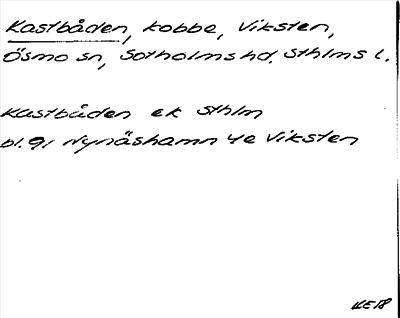 Kastbåden, kobbe, Viksten,
Ösmo sn, Sotholms hd. Sthlms l.
Kastbåden ek Sthlm
bl. 91 Nynäshamn 4e Viksten